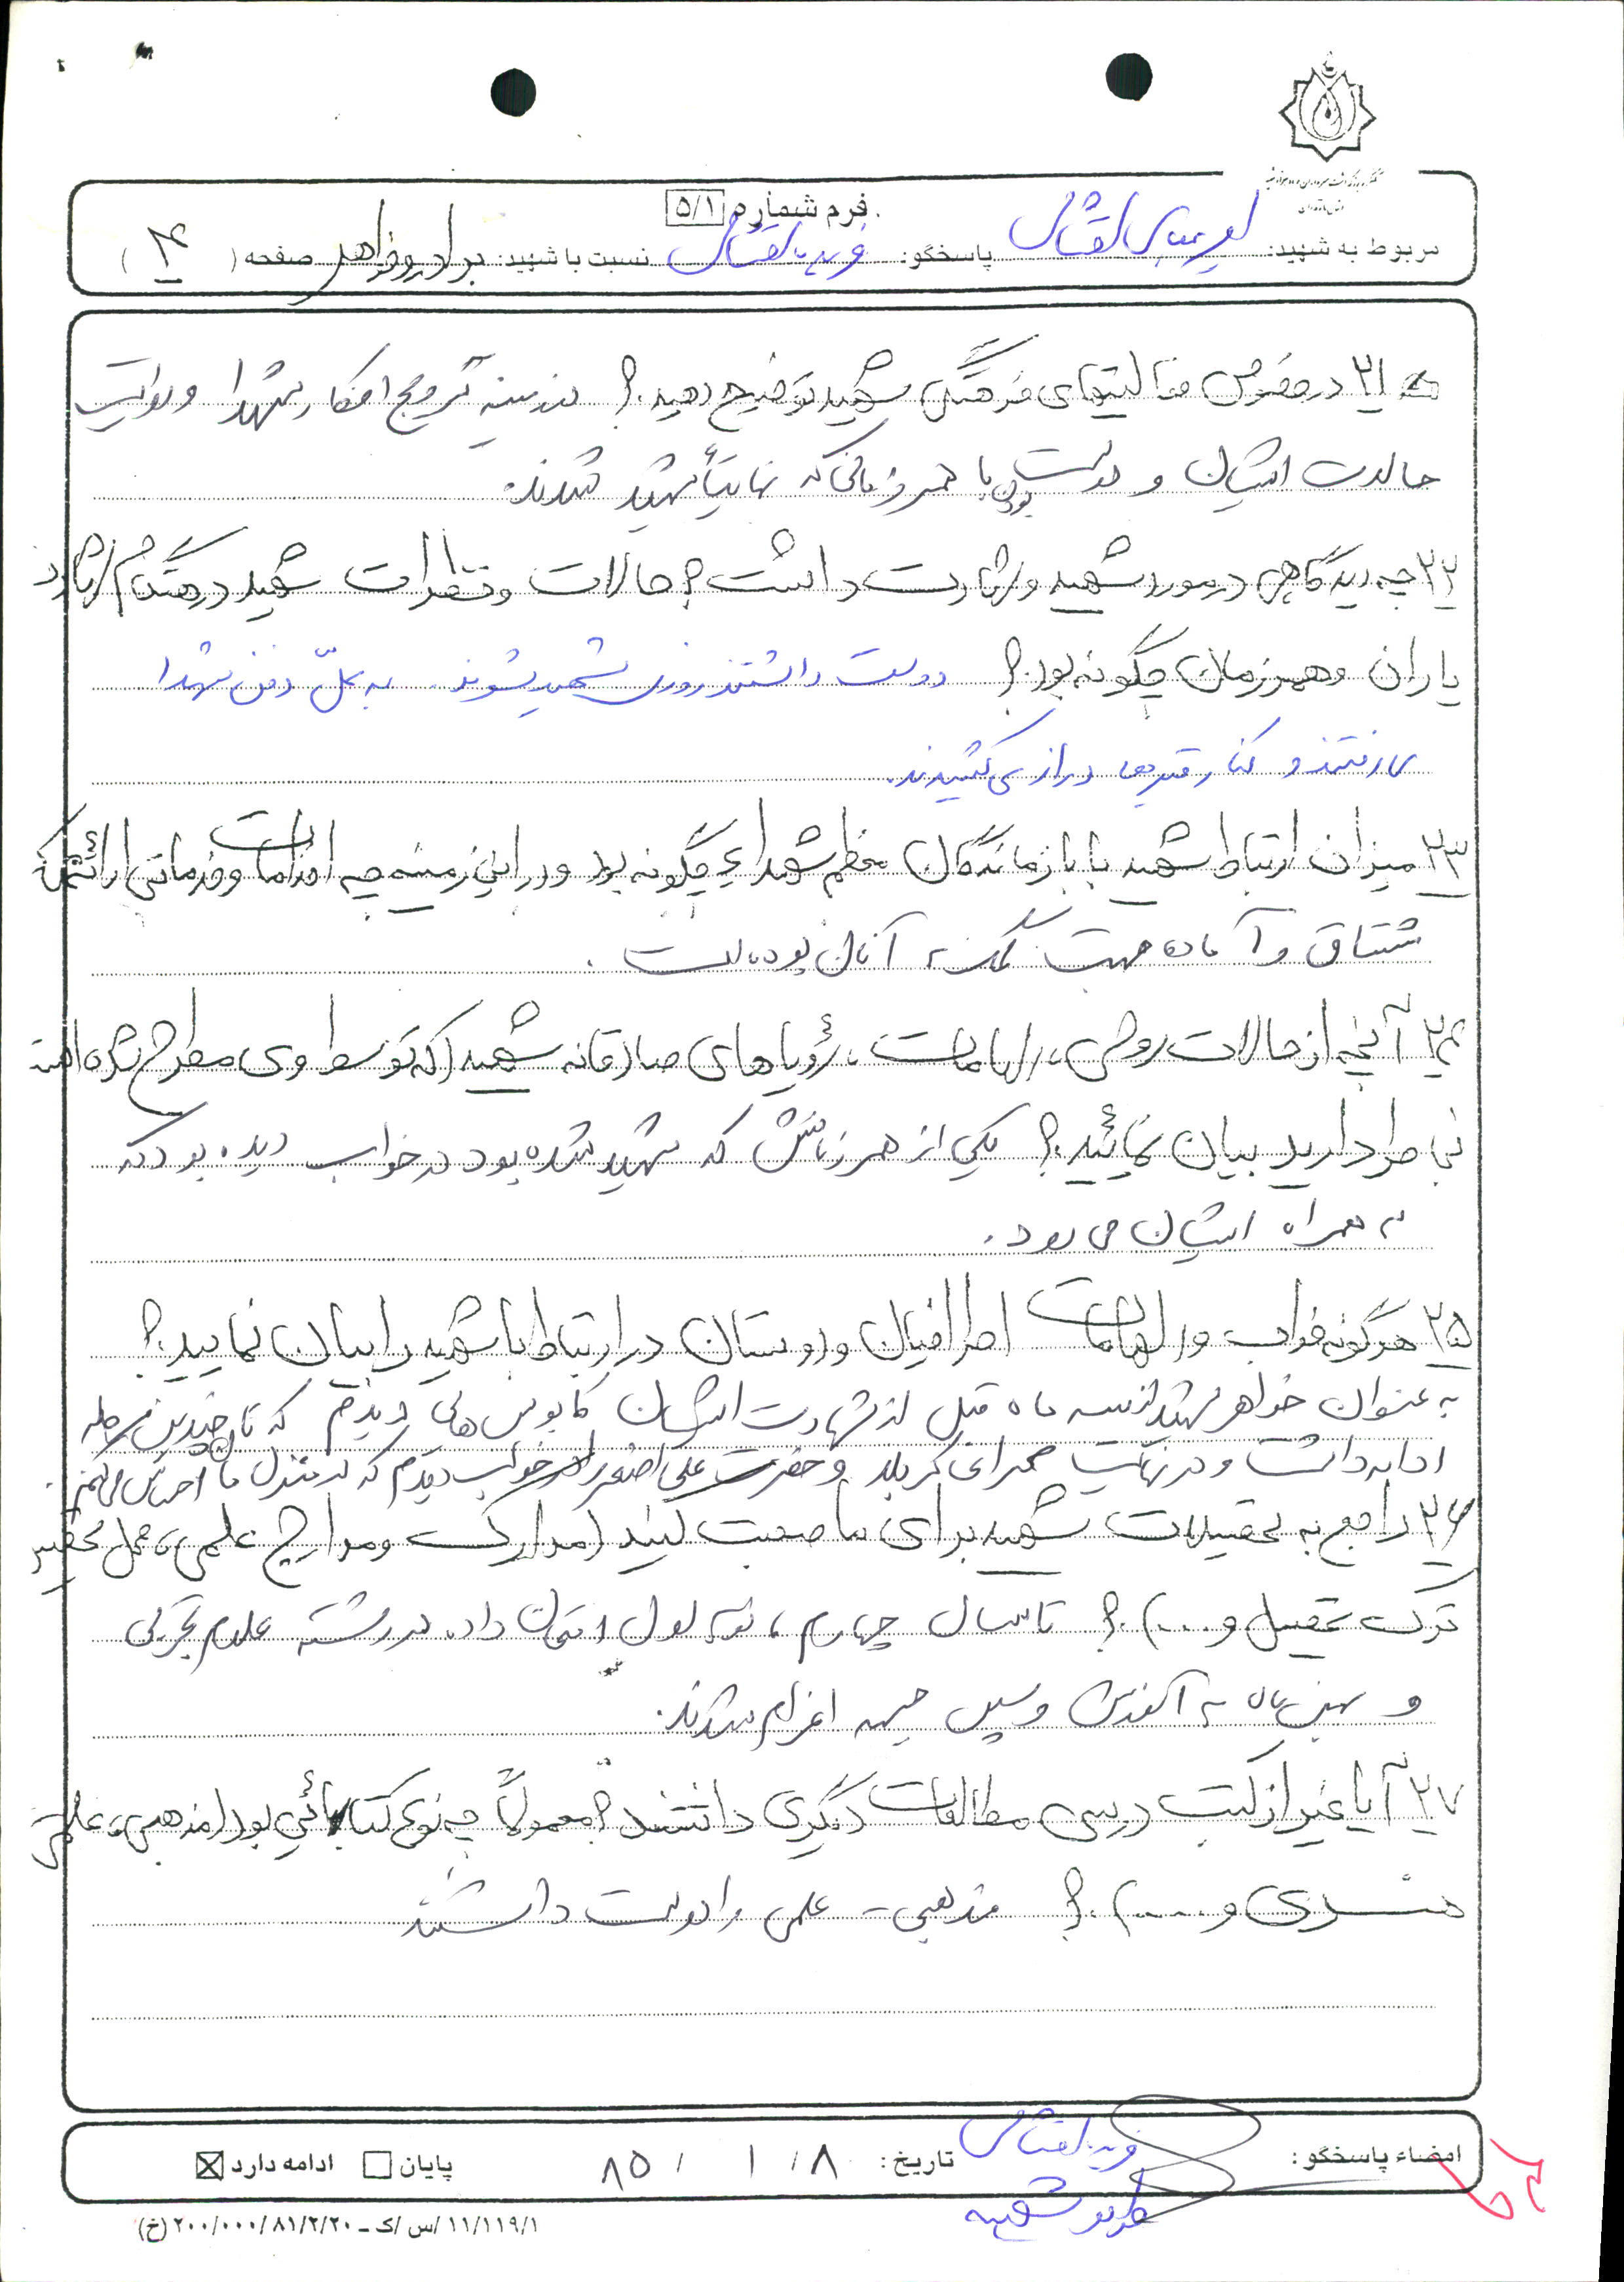 فرم شماره ۵/۱
مربوط به شهید: پاسخگو: نسبت با شهید: برادر و خواهر صفحه (۴)
۲۱ در خصوص فعالیتهای فرهنگی شهید توضیح دهید.؟ در زمینه ترویج افکار شهدا و روایت
حالات ایشان و دوست بودن با همرزمانی که نهایتاً شهید شدند.
۲۲ چه دیدگاهی در مورد شهید و شهادت داشت؟ حالات و نظرات شهید در هنگام شهادت
یاران و همرزمان چگونه بود.؟ دوست داشتند روزی شهید بشوند. به محلّ دفن شهدا
می رفتند و کنار قبرها دراز می کشیدند.
۲۳ میزان ارتباط شهید با بازماندگان معظم شهداء چگونه بود و در این زمینه چه اقدامات و خدماتی ارائه
مشتاق و آماده جهت کمک به آنان بوده است.
۲۴ آنچه از حالات روحی، الهامات، رؤیاهای صادقانه شهید (که توسط وی مطرح شده است
بخاطر دارید بیان نمائید.؟ یکی از همرزمانش که شهید شده بود در خواب دیده بود که
به همراه ایشان می رود.
۲۵ هرگونه خواب و الهامات اطرافیان و دوستان در ارتباط با شهید را بیان نمایید.؟
به عنوان خواهر شهید از سه ماه قبل از شهادت ایشان کابوس هایی دیدم که تا چندین مرحله
ادامه داشت و در نهایت صحرای کربلا و حضرت علی اصغر را در خواب دیدم که در منزل ما
۲۶ راجع به تحصیلات شهید برای ما صحبت کنید (مدارک و مدارج علمی، محل تحصیل
ترک تحصیل و ....).؟ تا سال چهارم، ثلث اول امتحان داد. در رشته علوم تجربی
و بهمن ماه به آموزش و سپس جبهه اعزام شدند.
۲۷ آیا غیر از کتب درسی مطالعات دیگری داشتند؟ معمولاً چه نوع کتابهائی بود (مذهبی، علمی
هنری و .....).؟ مذهبی - علمی را دوست داشتند
امضاء پاسخگو: تاریخ: ۸ / ۱ / ۸۵ ادامه دارد ☒ پایان ☐
خواهر شهید
۱۱/۱۱۹/۱ /س /ک ـ ۲۰۰/۰۰۰/۸۱/۲/۲۰ (خ)